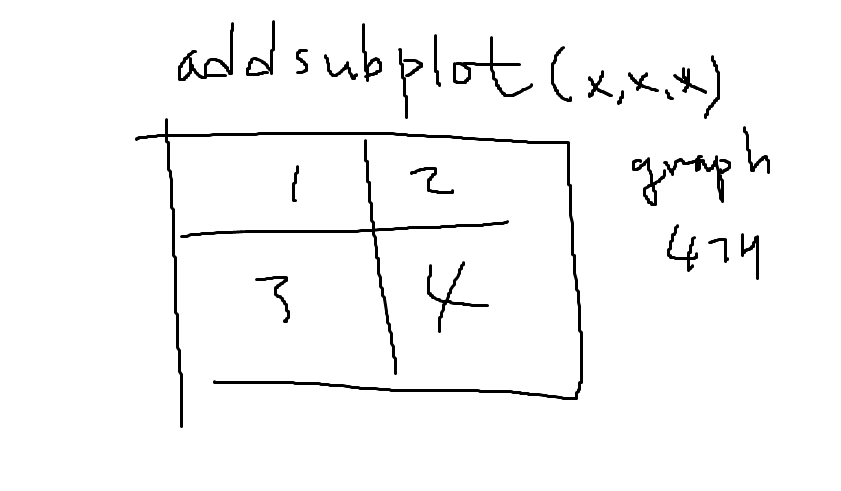 addsubplot(x,x,x)
1 2
graph
3 4